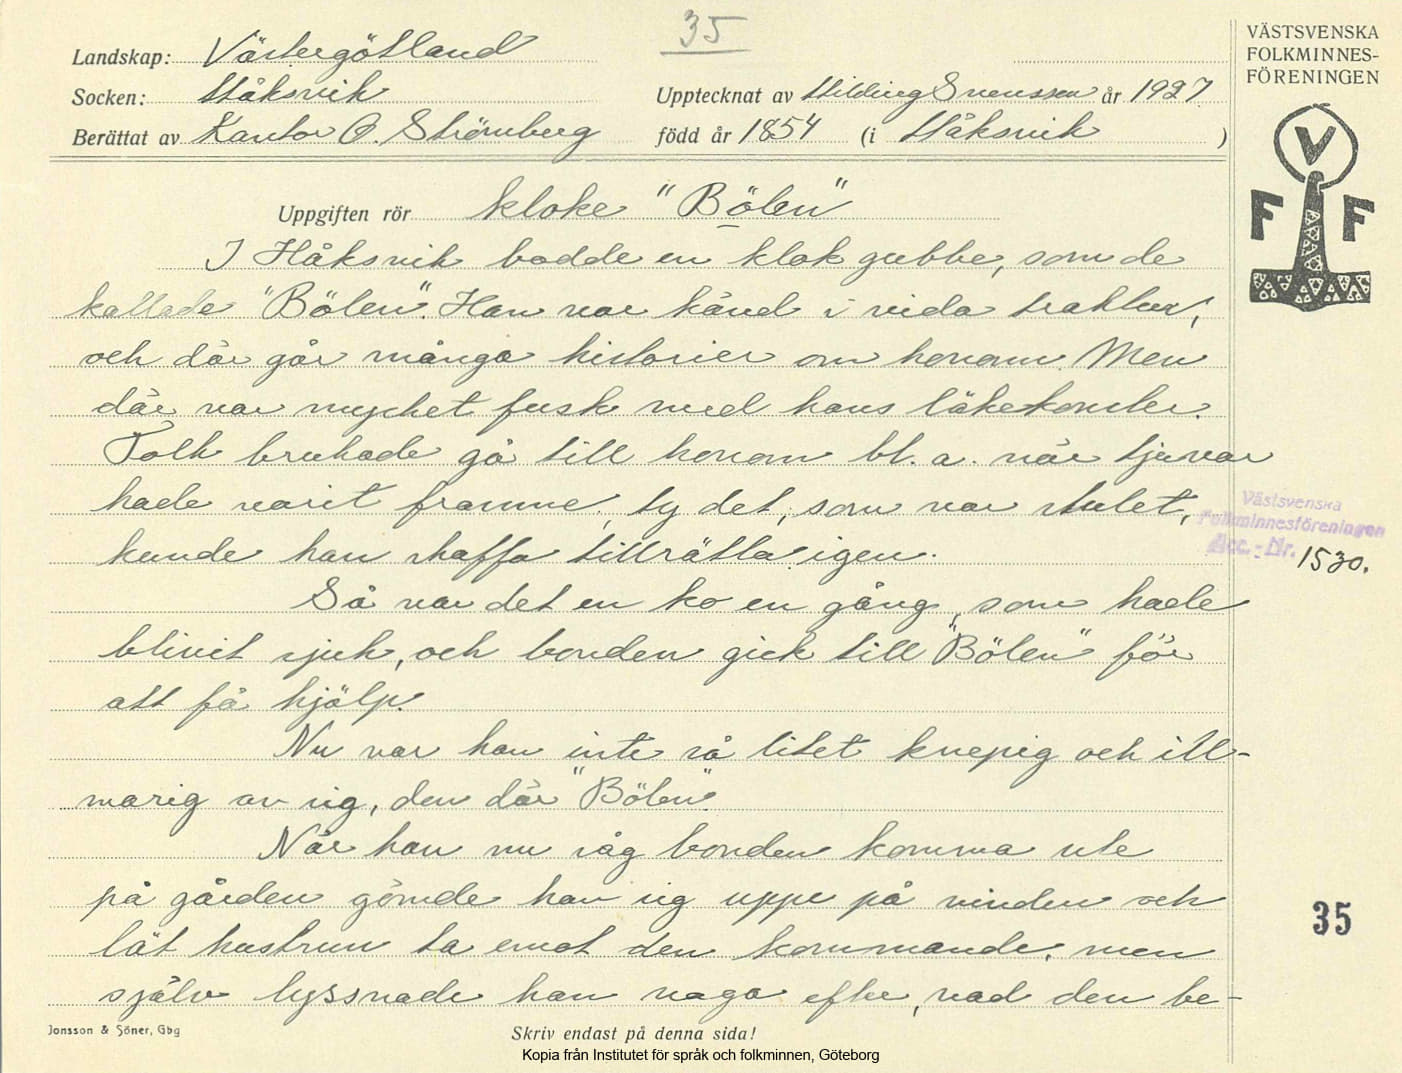 35
VÄSTSVENSKA
FOLKMINNES-
FÖRENINGEN
V
F F
Landskap: Västergötland
Socken: Håksvik
Upptecknat av Hilding Svensson år 1927
Berättat av Kantor O. Strömberg född år 1854 (i Håksvik )
Uppgiften rör kloke "Bölen"
I Håksvik bodde en klok gubbe, som de
kallade "Bölen". Han var känd i vida trakter,
och där går många historier om honom. Men
där var mycket fusk med hans läkekonster.
Folk brukade gå till honom bl. a. när tjuvar
hade varit framme, ty det, som var stulet,
kunde han skaffa tillrätta igen.
Så var det en ko en gång, som hade
blivit sjuk, och bonden gick till "Bölen" för
att få hjälp.
Nu var han inte så litet knepig och ill-
marig av sig, den där "Bölen".
När han nu såg bonden komma ute
på gården gömde han sig uppe på vinden och
lät hustrun ta emot den kommande, men
själv lyssnade han noga efter, vad den be-
Västsvenska
Folkminnesföreningen
Acc.-Nr. 1530.
35
Jonsson & Söner, Gbg
Skriv endast på denna sida!
Kopia från Institutet för språk och folkminnen, Göteborg